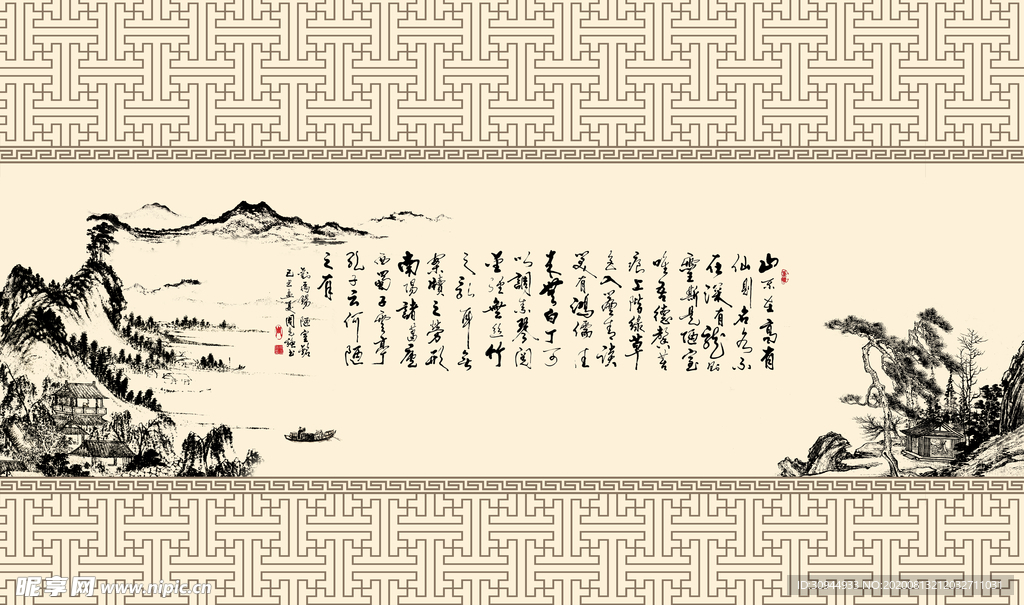 山不在高有
仙則名水不
在深有龍則
靈斯是陋室
唯吾德馨苔
痕上階綠草
色入簾青談
笑有鴻儒往
來無白丁可
以調素琴閱
金經無絲竹
之亂耳無
案牘之勞形
南陽諸葛廬
西蜀子雲亭
孔子云何陋
之有
劉禹錫 陋室銘
昵享网 www.nipic.cn
ID:30944933 NO:20200813212032711031